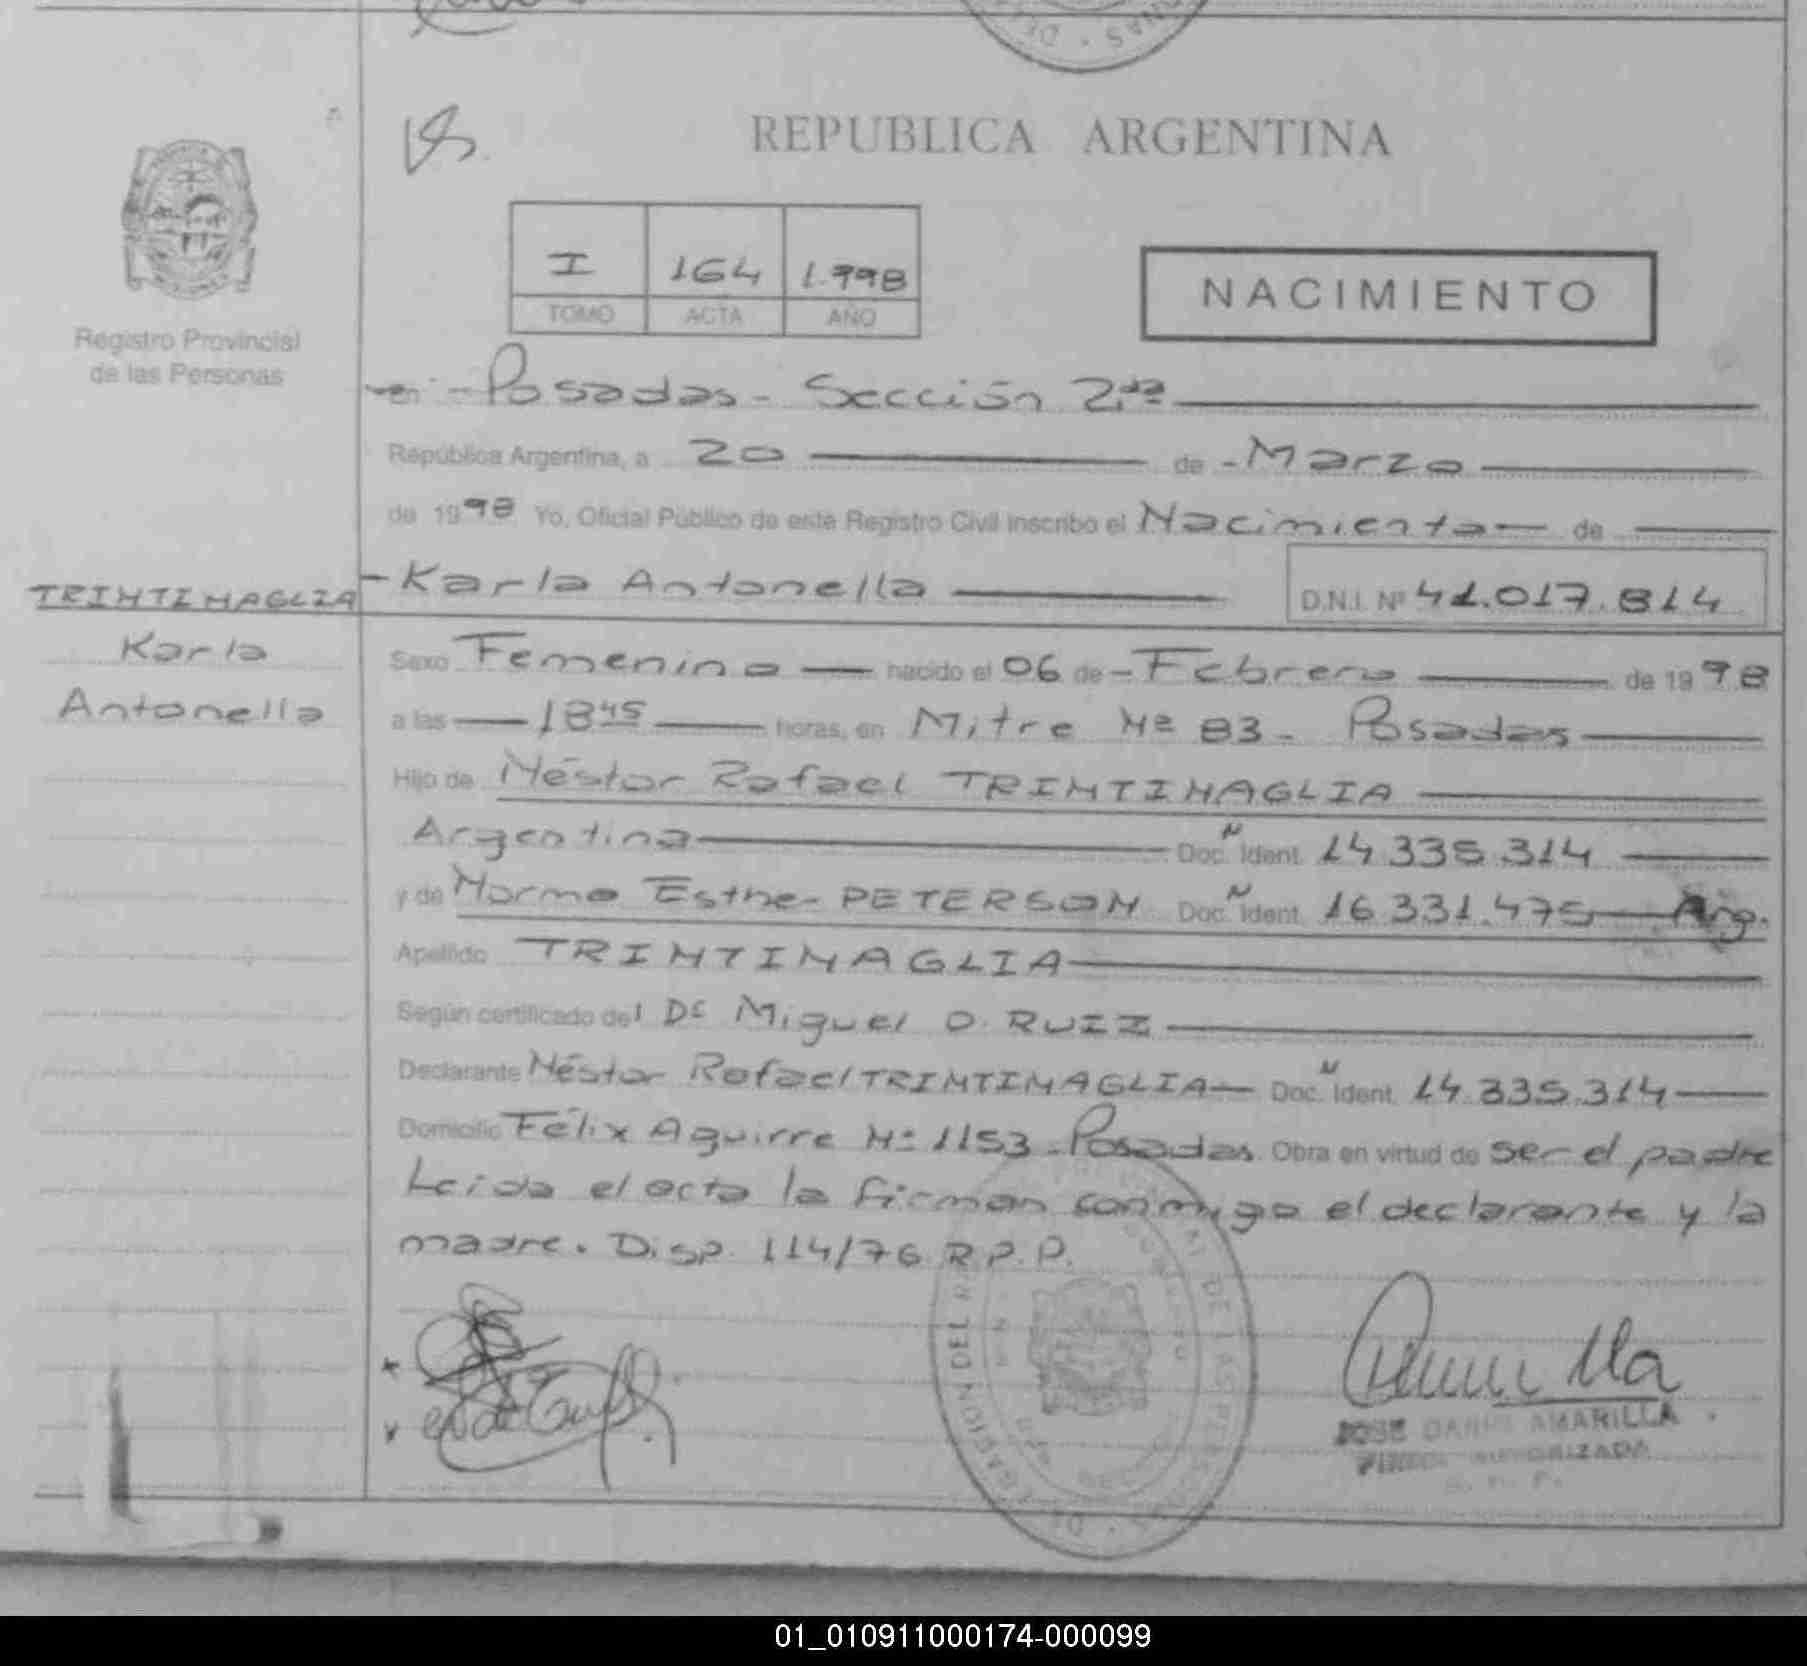 REPUBLICA ARGENTINA
I 164 1.998
TOMO ACTA AÑO
NACIMIENTO
Registro Provincial
de las Personas
en - Posadas - Sección 2da
República Argentina, a 20 de - Marzo
de 1998 Yo, Oficial Público de este Registro Civil inscribo el Nacimiento de
TRINTINAGLIA
Karla
Antonella
- Karla Antonella D.N.I. Nº 41.017.814
Sexo Femenino nacido el 06 de - Febrero de 1998
a las 18 45 horas, en Mitre Nº 83 - Posadas
Hijo de Néstor Rafael TRINTINAGLIA
Argentina Doc. Ident. 14.335.314
y de Norma Esther PETERSON Doc. Ident. 16.331.475 Arg.
Apellido TRINTINAGLIA
Según certificado del Dr Miguel O. RUIZ
Declarante Néstor Rafael TRINTINAGLIA Doc. Ident. 14.335.314
Domicilio Félix Aguirre Nº 1153 - Posadas. Obra en virtud de ser el padre
Leida el acta la firman conmigo el declarante y la
madre. Disp. 114/76 R.P.P.
JOSE DARIO AMARILLA
01_010911000174-000099